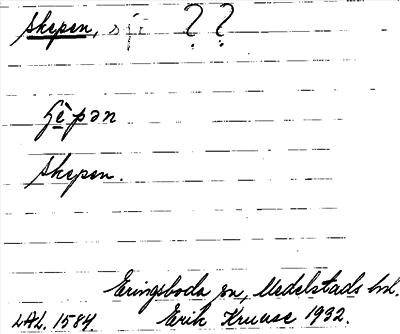 skepen, ??
skepen.
Eringsboda sn, Medelstads hd.
LAL. 1584. Erik Kruuse 1932.